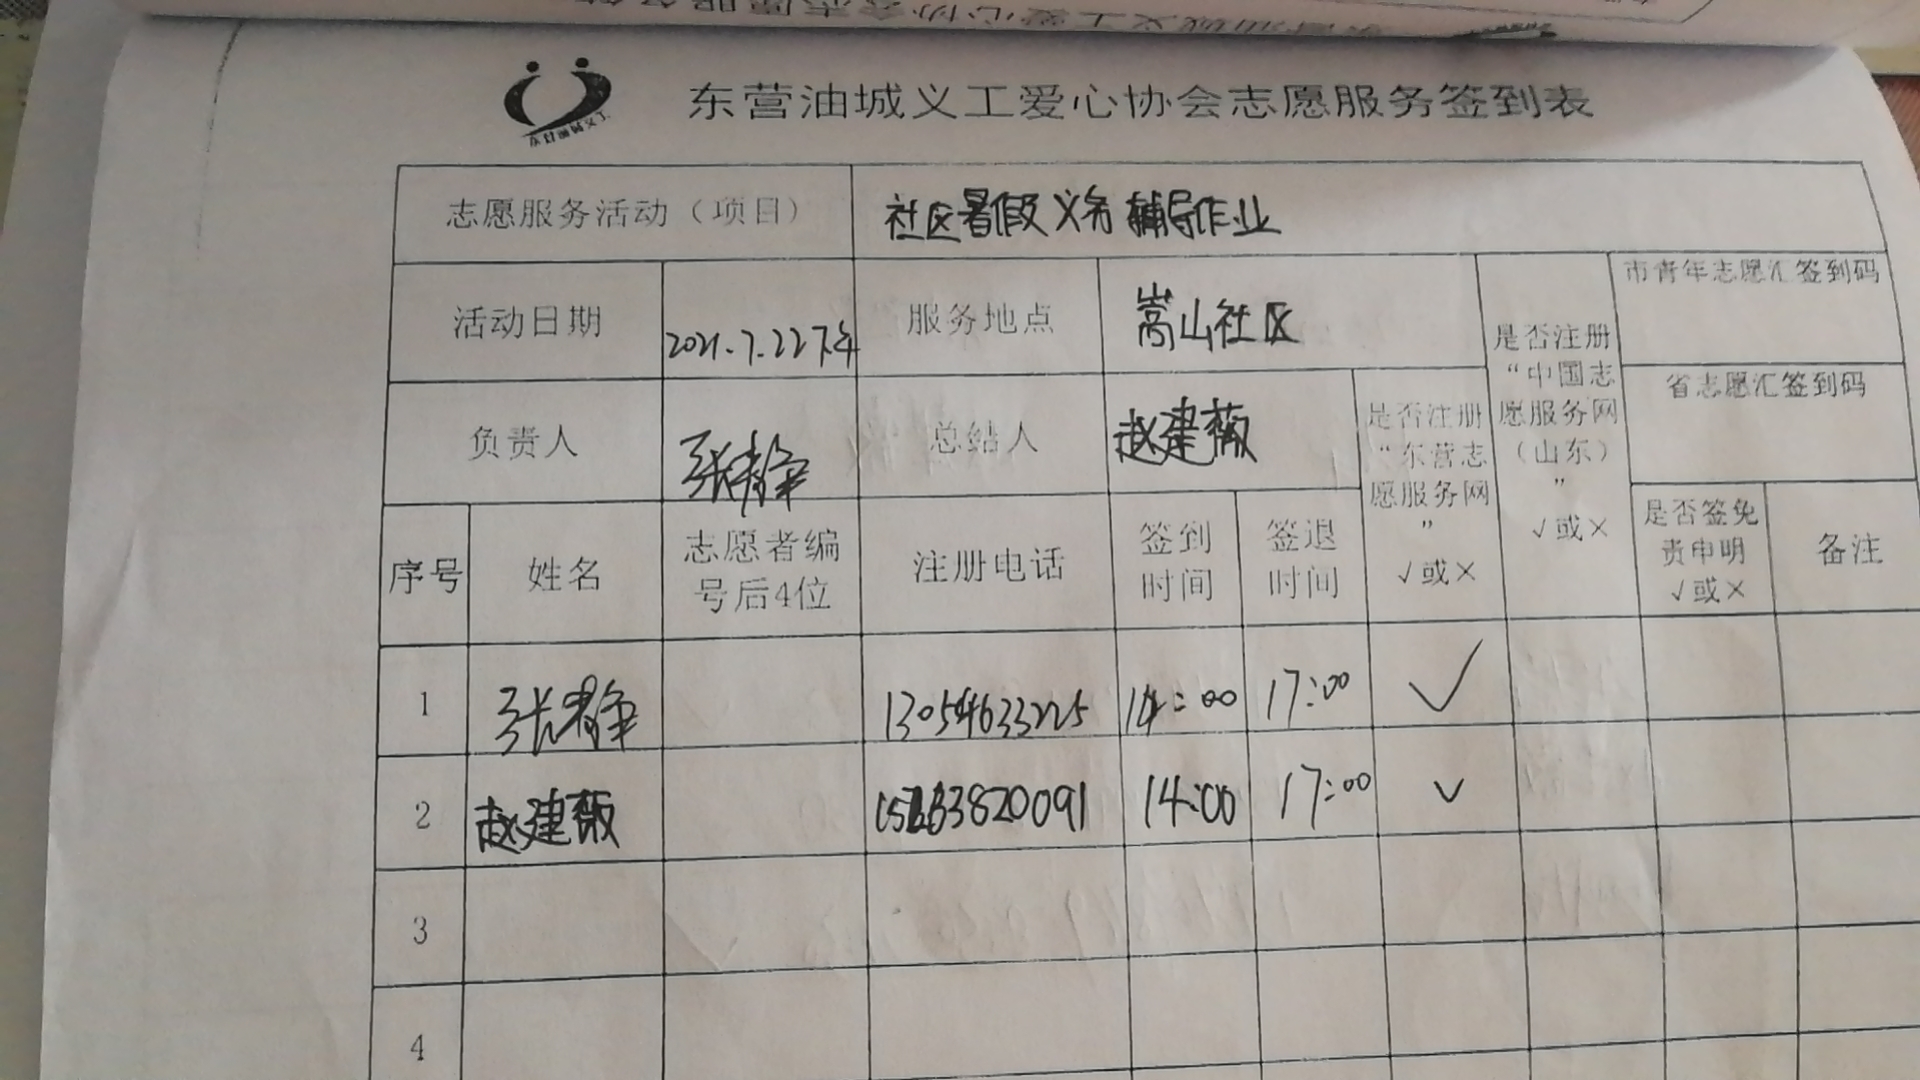 东营油城义工
东营油城义工爱心协会志愿服务签到表
志愿服务活动（项目） 社区暑假义务辅导作业
活动日期 2021.7.22下午 服务地点 嵩山社区
是否注册“中国志愿服务网（山东）” √或×
市青年志愿汇签到码
省志愿汇签到码
负责人 张静 总结人 赵建薇
是否注册“东营志愿服务网” √或×
序号 姓名 志愿者编号后4位 注册电话 签到时间 签退时间 是否签免责申明 √或× 备注
1 张静 13054633225 14:00 17:00 √
2 赵建薇 14:00 17:00 √
3
4